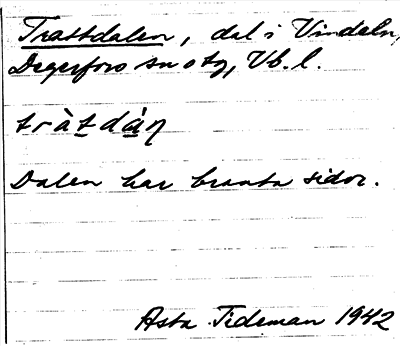 Trattdalen, dal i Vindeln,
Degerfors sn o tg, Vb. l.
tràt dàṇ
Dalen har branta sidor.
Asta Tideman 1942